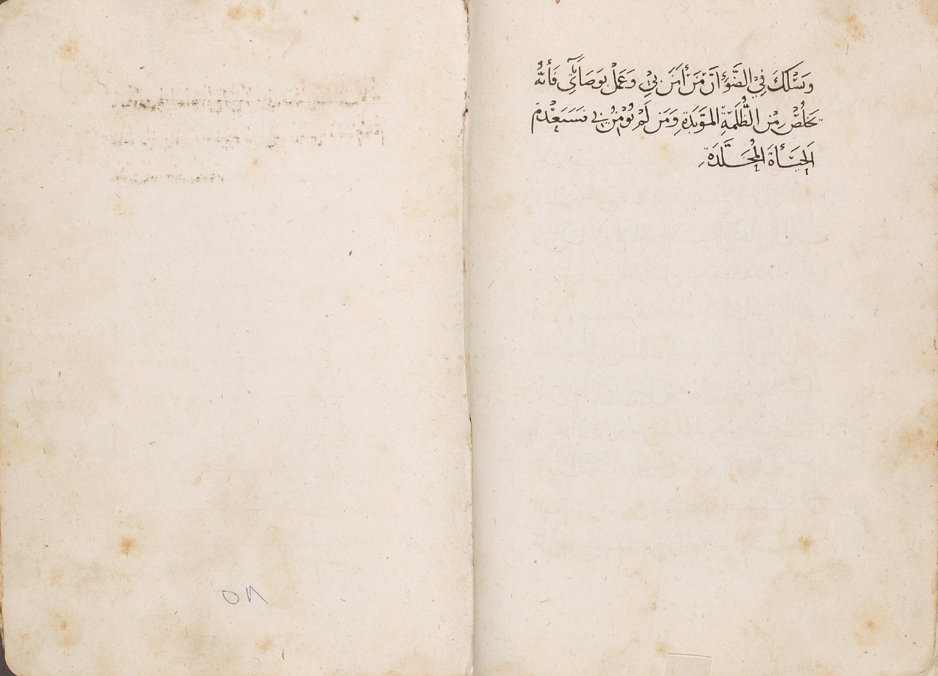 وَسْلَكَ فِي الضَّوْءِ اَنَّ مَن اَمَن بِي وَعَمل بوَصَائَي فَأنهُ
يَخلُصْ مِن الظُلمَةِ المَوَبَدَة وَمَن لَمْ يُوْمِنْ بِي فسَيَعْدِم
الحَيَأةَ المُخَلَّدَة
٥٨